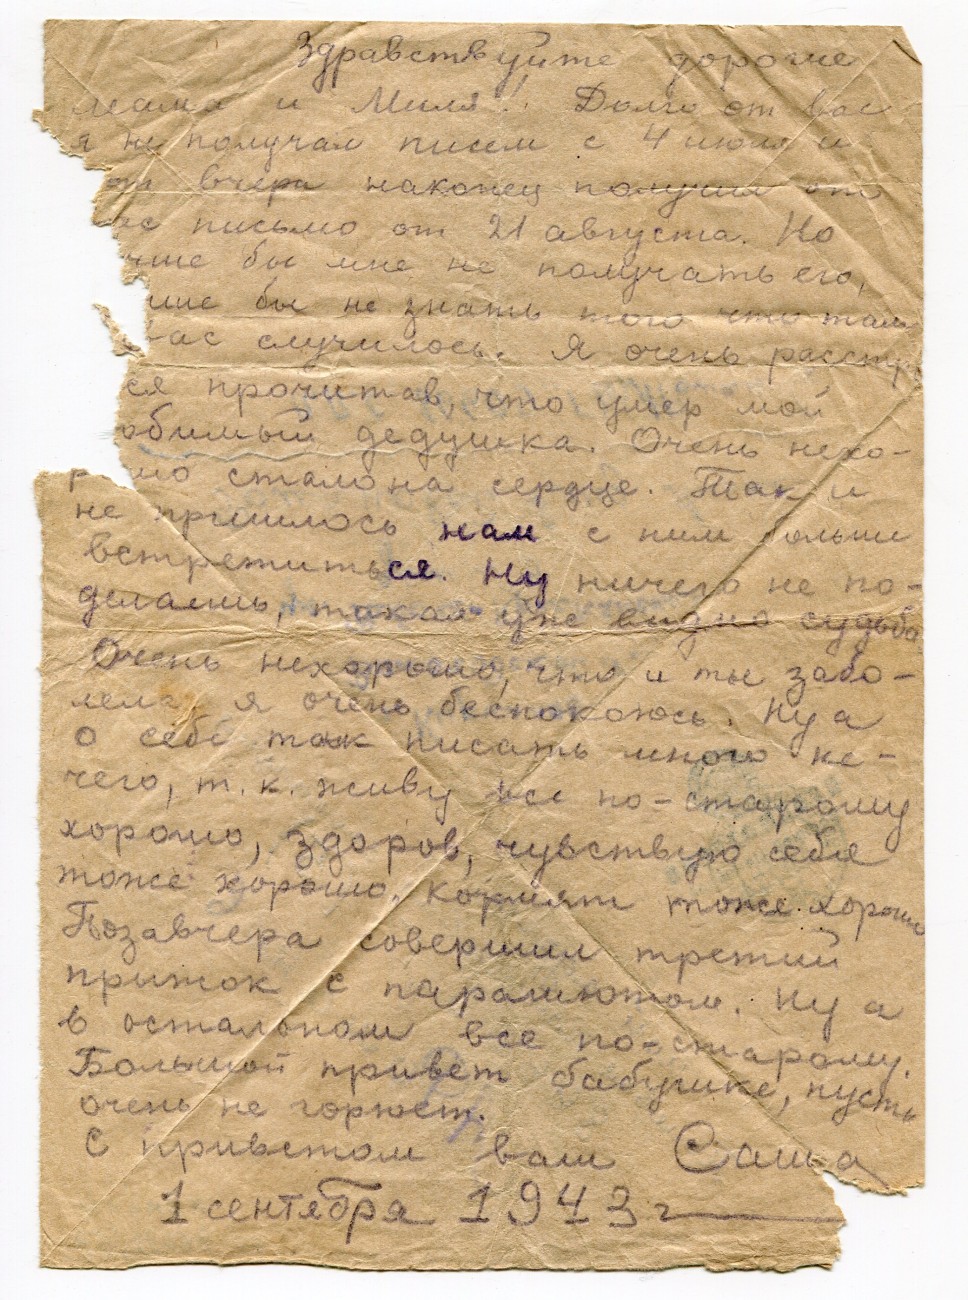 Здравствуйте дорогие
мама и Миля! Долго от вас
я не получал писем с 4 июля и
вчера наконец получил
письмо от 21 августа. Но
чше бы мне не получать его,
чше бы не знать того что там
вас случилось. Я очень расстр
ся прочитав, что умер мой
юбимый дедушка. Очень нехо-
р шо стало на сердце. Так и
не пришлось нам с ним больше
встретиться. Ну ничего не по-
делаешь, такая уже видно судьба
Очень нехорошо, что и ты забо-
лела, я очень беспокоюсь. Ну а
о себе так писать много не-
чего, т.к. живу все по-старому
хорошо, здоров, чувствую себя
тоже хорошо. Кормят тоже хорошо
Позавчера совершил третий
прыжок с парашютом. Ну а
в остальном все по-старому.
Большой привет бабушке, пусть
очень не горюет.
С приветом ваш Саша
1 сентября 1943 г